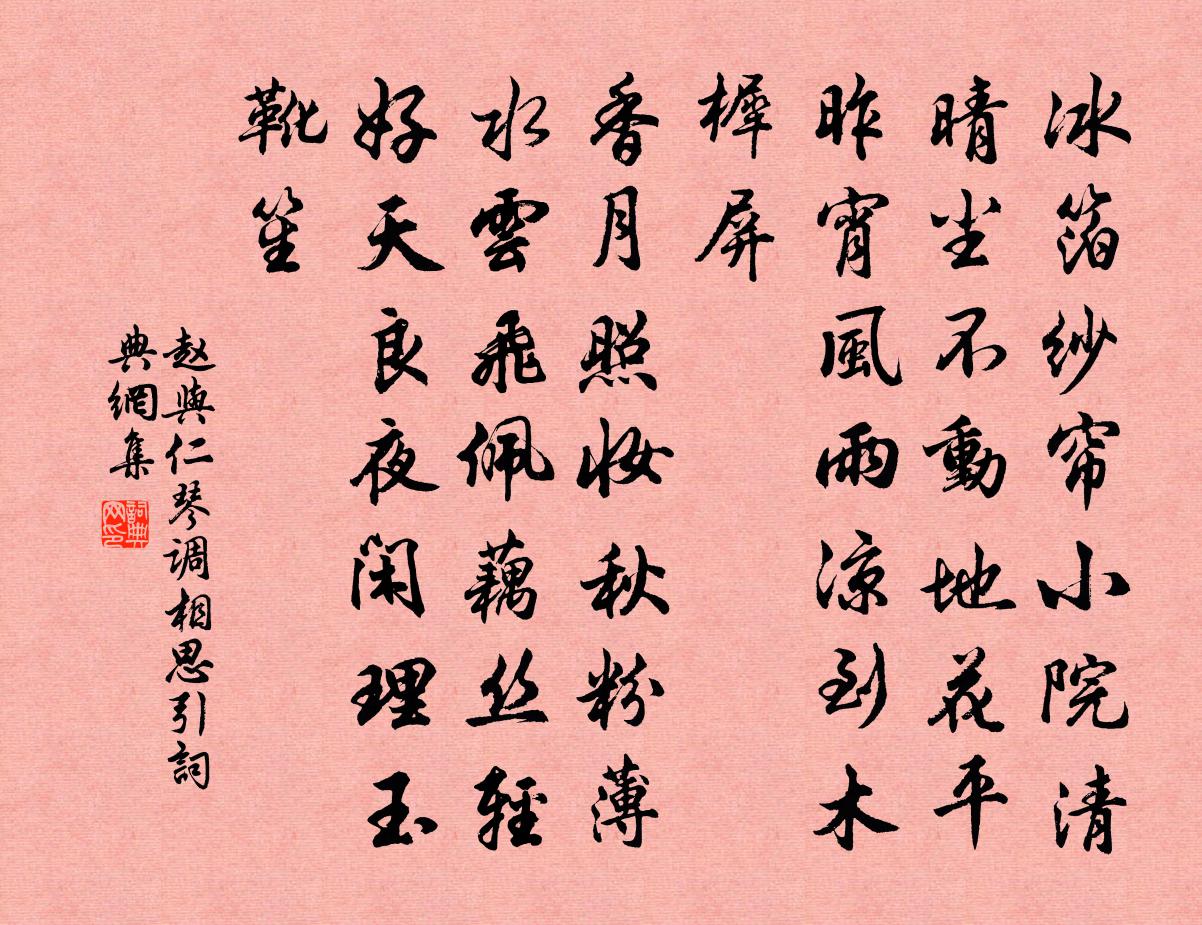 冰箔紗帘小院清
晴尘不動地花平
昨宵風雨涼到木
樨屏
香月照妝秋粉薄
水雲飛佩藕丝輕
好天良夜闲理玉
靴笙
赵與仁琴调相思引詞
典網集
詞典網印